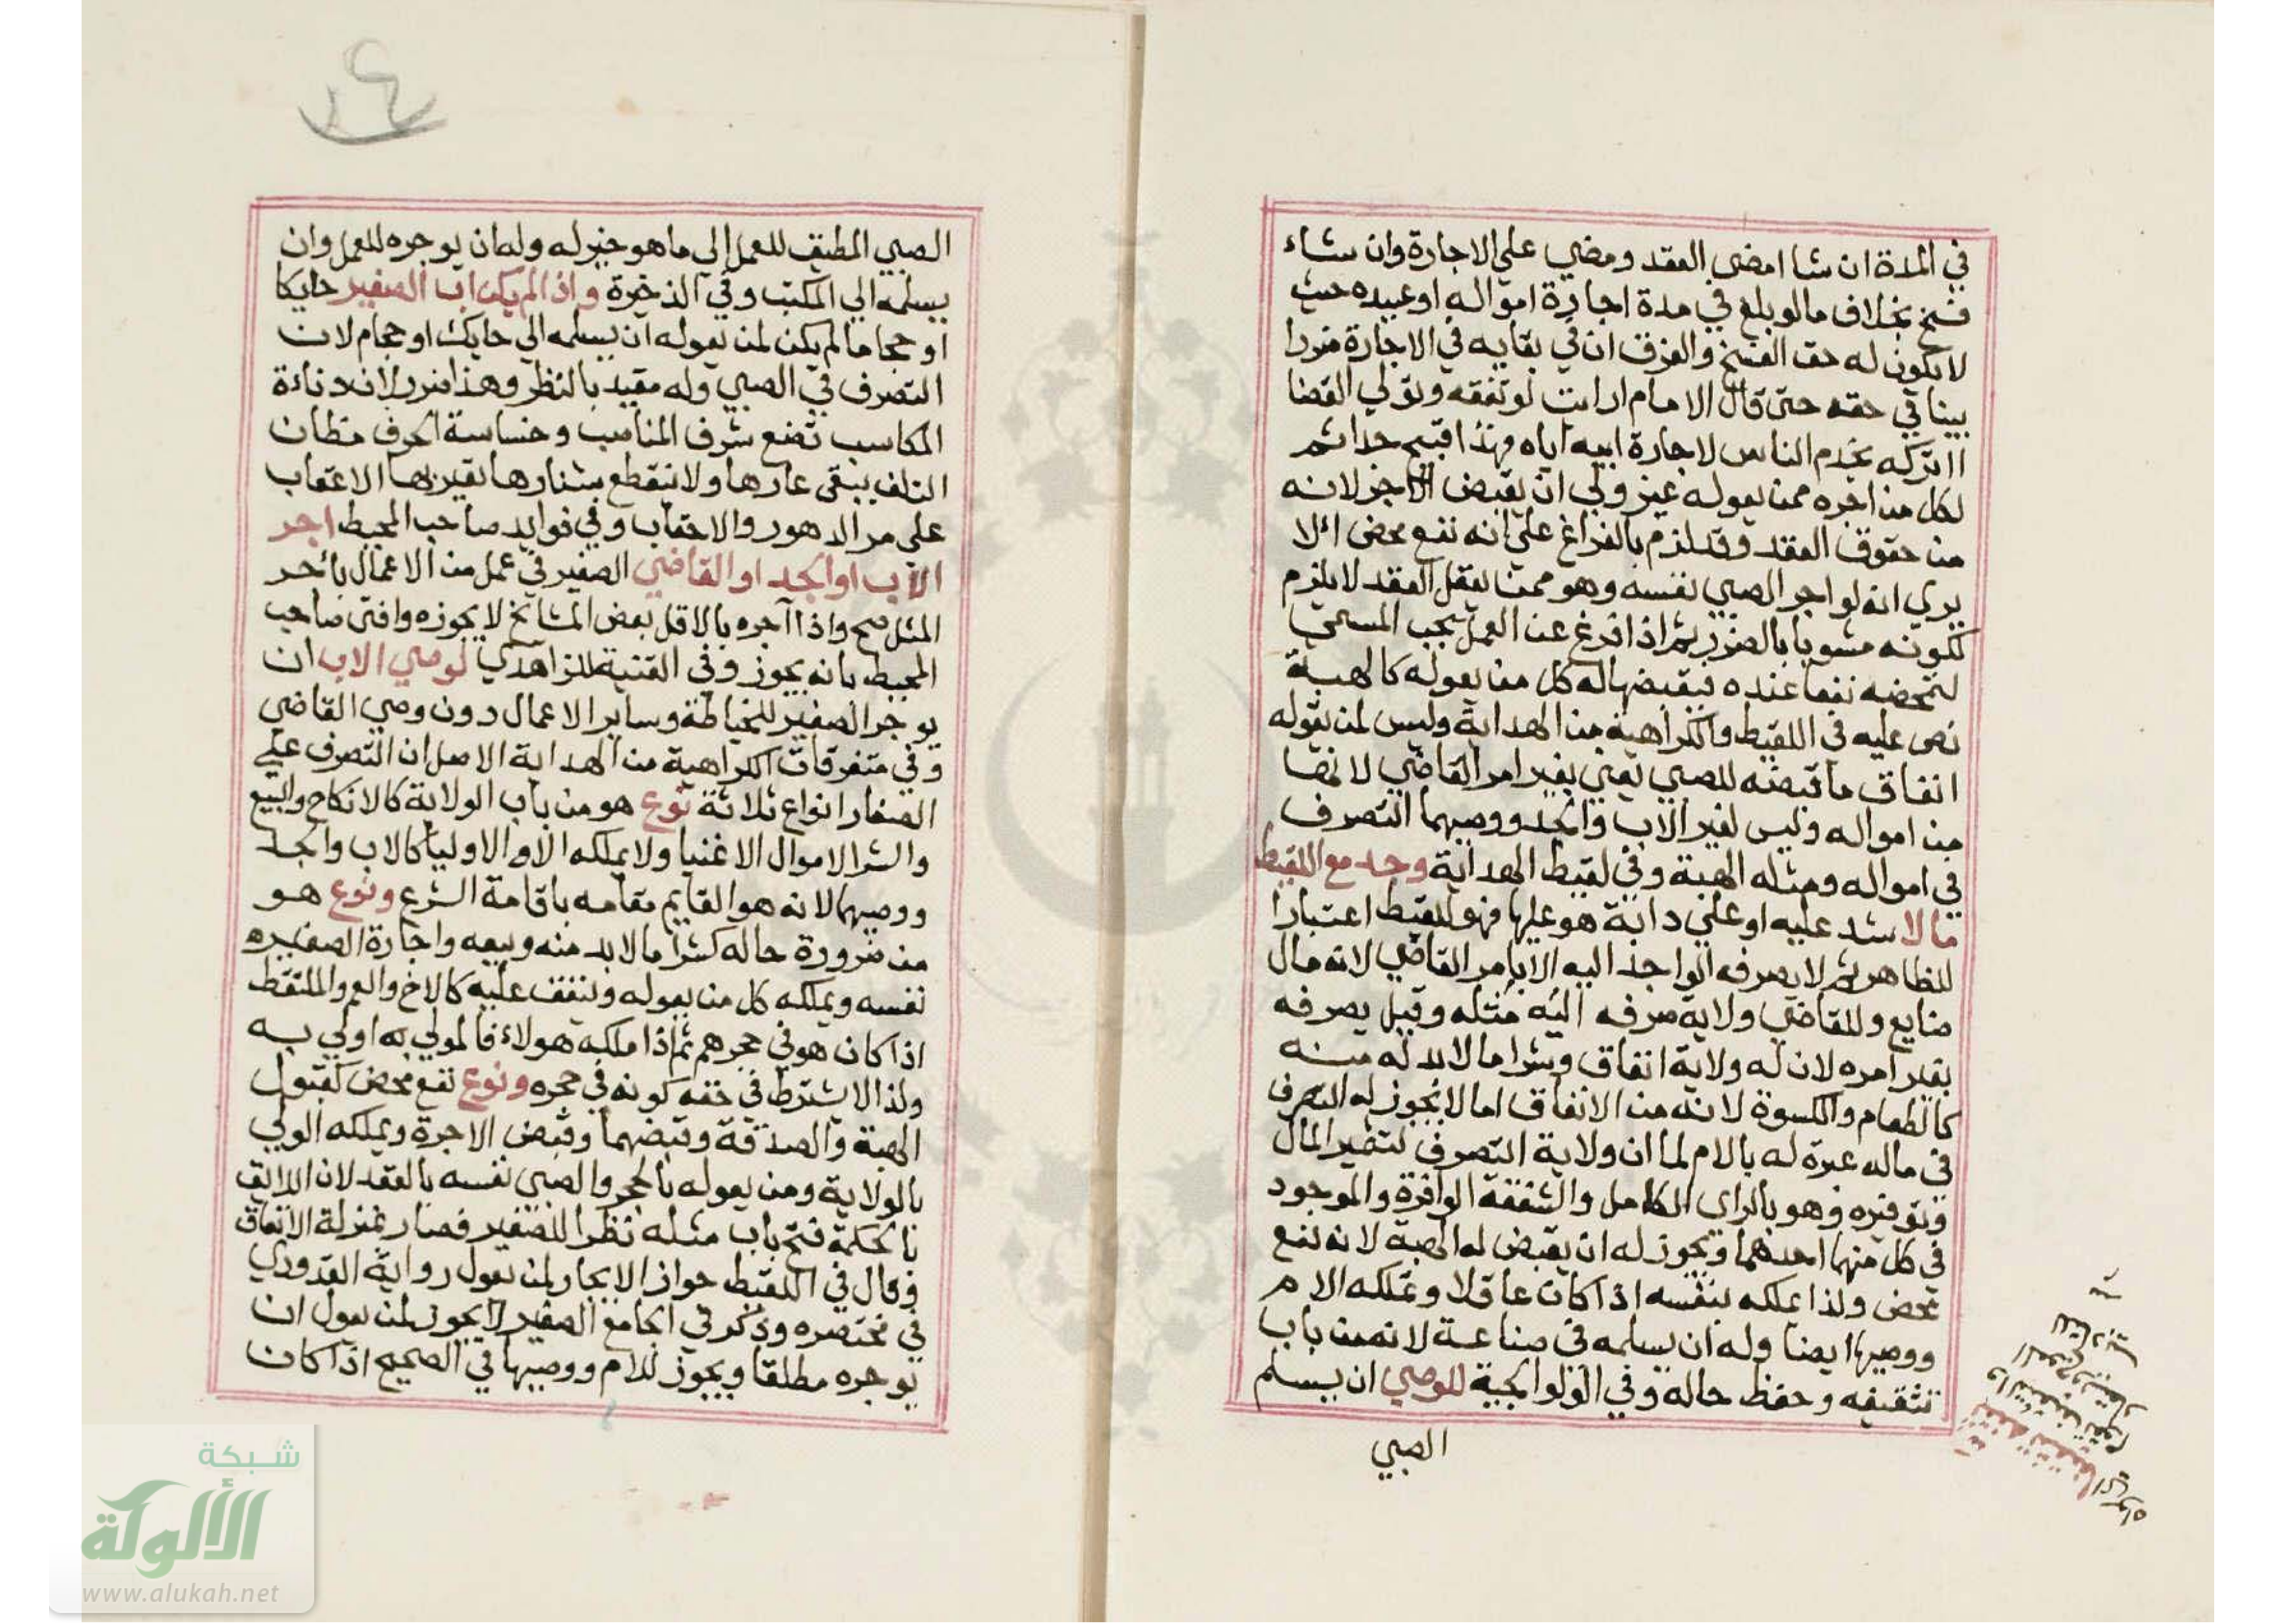 في المدة ان شا امضى العقد ومضي علي الاجارة وان شاء
فسخ بخلاف ما لو بلغ في مدة اجارة امواله او عبيده حيث
لا يكون له حق الفسخ والفرق ان في بقايه في الاجارة ضررا
بينا في حقه حتى قال الامام ارايت لو تفقه وتولي القضا
ااتركه يخدم الناس لاجارة ابيه اياه فهذا قبيح جدا ثم
لكل من اجره ممن يعوله غير ولي ان يقبض الاجر لانه
من حقوق العقد وقد لزم بالفراغ علي انه نفع محض الا
يري انه لو اجر الصبي نفسه وهو ممن يعقل العقد لا يلزم
لكونه مشوبا بالضرر ثم اذا فرغ عن العمل يجب المسمي
لتمحضه نفعا عنده فيقبضها له كل من يعوله كالهبة
نص عليه في اللقيط والكراهية من الهداية وليس لمن يعوله
انفاق ما قبضه للصبي يعني بغير امر القاضي لانها
من امواله وليس لغير الاب والجد ووصيهما التصرف
في امواله ومثله الهبة وفي لقيط الهداية وجد مع اللقيط
مالا شد عليه او علي دابة هو عليها فهو للقيط اعتبارا
للظاهر ثم لا يصرفه الواجد اليه الا بامر القاضي لانه مال
ضايع وللقاضي ولاية صرفه اليه مثله وقيل يصرفه
بغير امره لان له ولاية انفاق وشرا ما لا بد له منه
كالطعام والكسوة لانه من الانفاق اما لا يجوز له التصرف
في ماله عبرة له بالام لما ان ولاية التصرف لتثمير المال
وتوفيره وهو بالراي الكامل والشفقة الوافرة والموجود
في كل منهما احدهما ويجوز له ان يقبض له الهبة لانه نفع
محض ولذا يملكه بنفسه اذا كان عاقلا وتملكه الام
ووصيها ايضا وله ان يسلمه في صناعة لانه من باب
تثقيفه وحفظ حاله وفي الولوالجية للوصي ان يسلم
الصبي
الصبي المطيق للعمل الي ما هو خير له وله ان يوجره للعمل وان
يسلمه الي المكتب وفي الذخيرة واذا لم يكن اب الصغير حايكا
او حجاما لم يكن لمن يعوله ان يسلمه الي حايك او حجام لان
التصرف في الصبي وله مقيد بالنظر وهذا ضرر لان دناءة
المكاسب تضع شرف المناصب وخساسة الحرف مظان
التلف يبقى عارها ولا ينقطع شنارها يعير بها الاعقاب
علي مر الدهور والاحقاب وفي فوايد صاحب المحيط اجر
الاب او الجد او القاضي الصغير في عمل من الاعمال باجر
المثل صح واذا آجره بالاقل بعض المشائخ لا يجوزه وافتى صاحب
المحيط بانه يجوز وفى القنية للزاهدي لوصي الاب ان
يوجر الصغير للخياطة وساير الاعمال دون وصي القاضي
وفي متفرقات الكراهية من الهداية الاصل ان التصرف علي
الصغار انواع ثلاثة نوع هو من باب الولاية كالانكاح والبيع
والشرا لاموال الاغنيا ولا يملكه الا والاوليا كالاب والجد
ووصيهما لانه هو القايم مقامه باقامة الشرع ونوع هو
من ضرورة حاله كشرا ما لا بد منه وبيعه واجارة الصغيره
نفسه ويملكه كل من يعوله وينفق عليه كالاخ والعم والملتقط
اذا كان هو في حجرهم ثم اذا ملكه هولاء فالولي به اولي به
ولذا لا يشترط في حقه كونه في حجره ونوع نفع محض كقبول
الهبة والصدقة وقبضهما وقبض الاجرة ويملكه الولي
بالولاية ومن يعوله بالحجر والصبي نفسه بالعقد لان اللايق
بالحكمة فتح باب مثله نظرا للصغير فصار بمنزلة الانفاق
وقال في اللقيط جواز الايجار لمن يعول رواية القدوري
في مختصره وذكر في الجامع الصغير لا يجوز لمن يعول ان
يوجره مطلقا ويجوز للام ووصيها في الصحيح اذا كان
شبكة
الألوكة
www.alukah.net